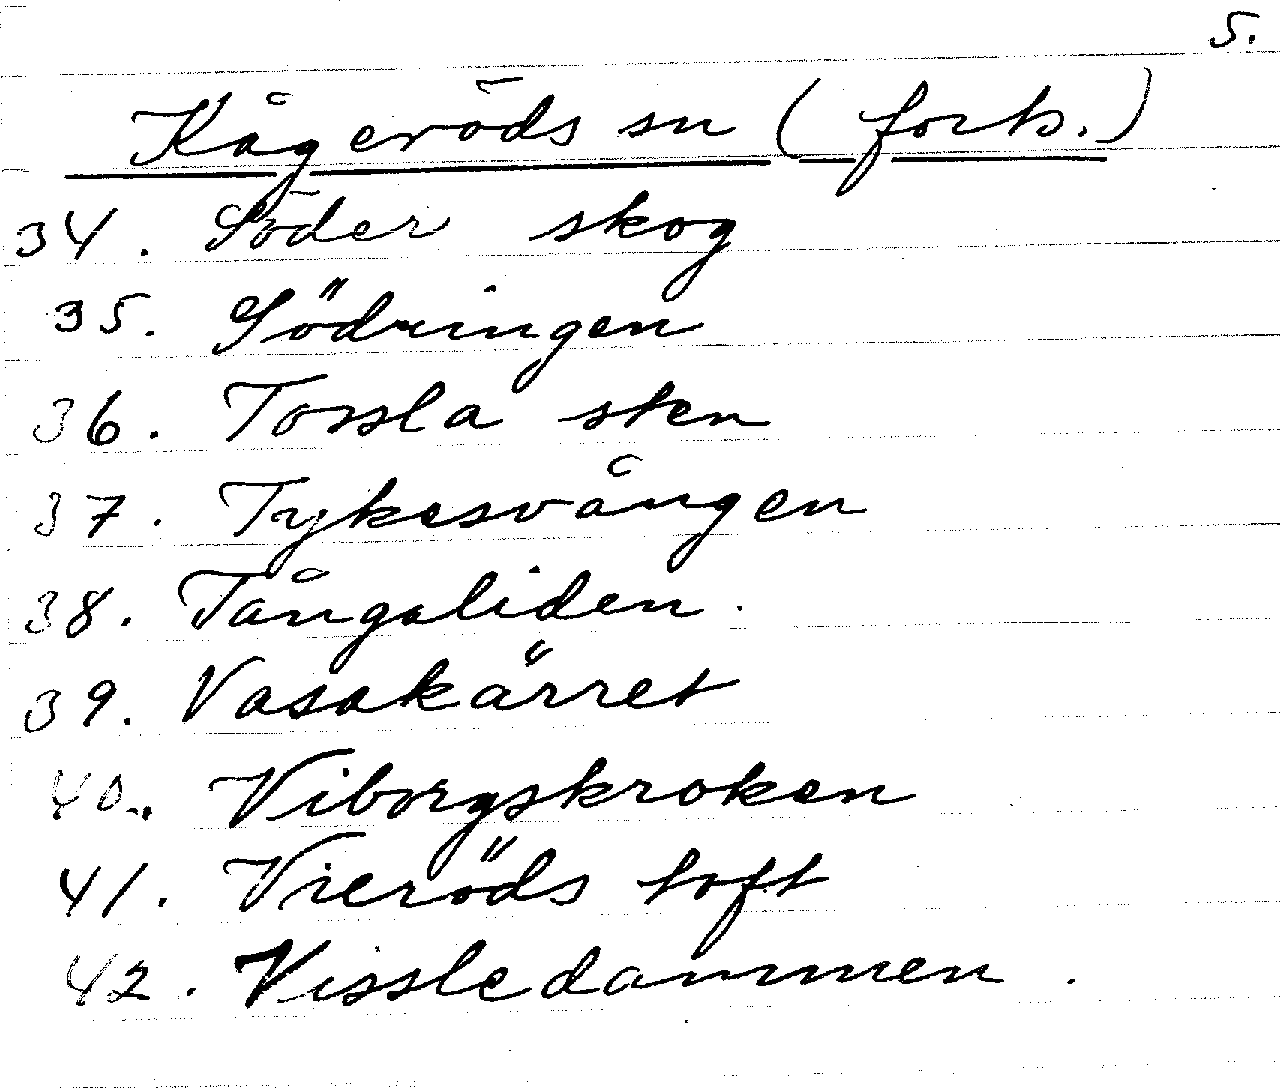 5.
Kågeröds sn (forts.)
34. Söder skog
35. Södringen
36. Tossla sten
37. Tykesvången
38. Tångaliden.
39. Vasakärret
40. Viborgskroken
41. Vieröds toft
42. Vissledammen.